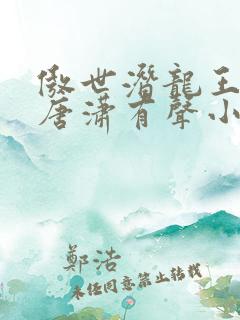 傲世潛龍王
唐瀟有聲小
鄭浩
未經同意禁止轉載